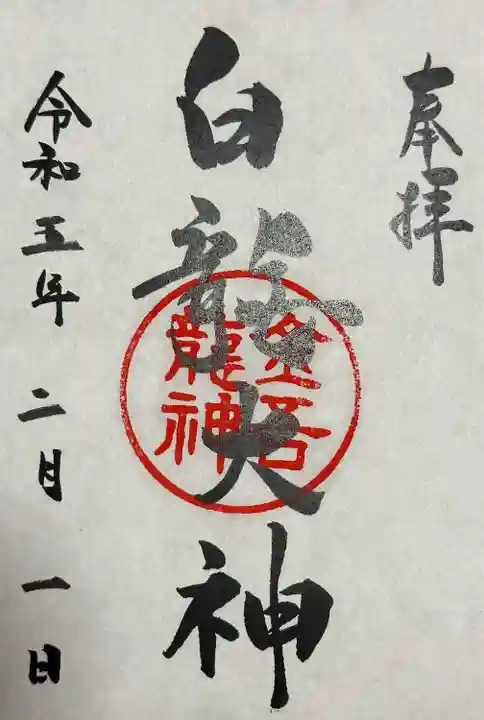 奉拝
白龍大神
金吾
龍神
令和五年 二月 一日